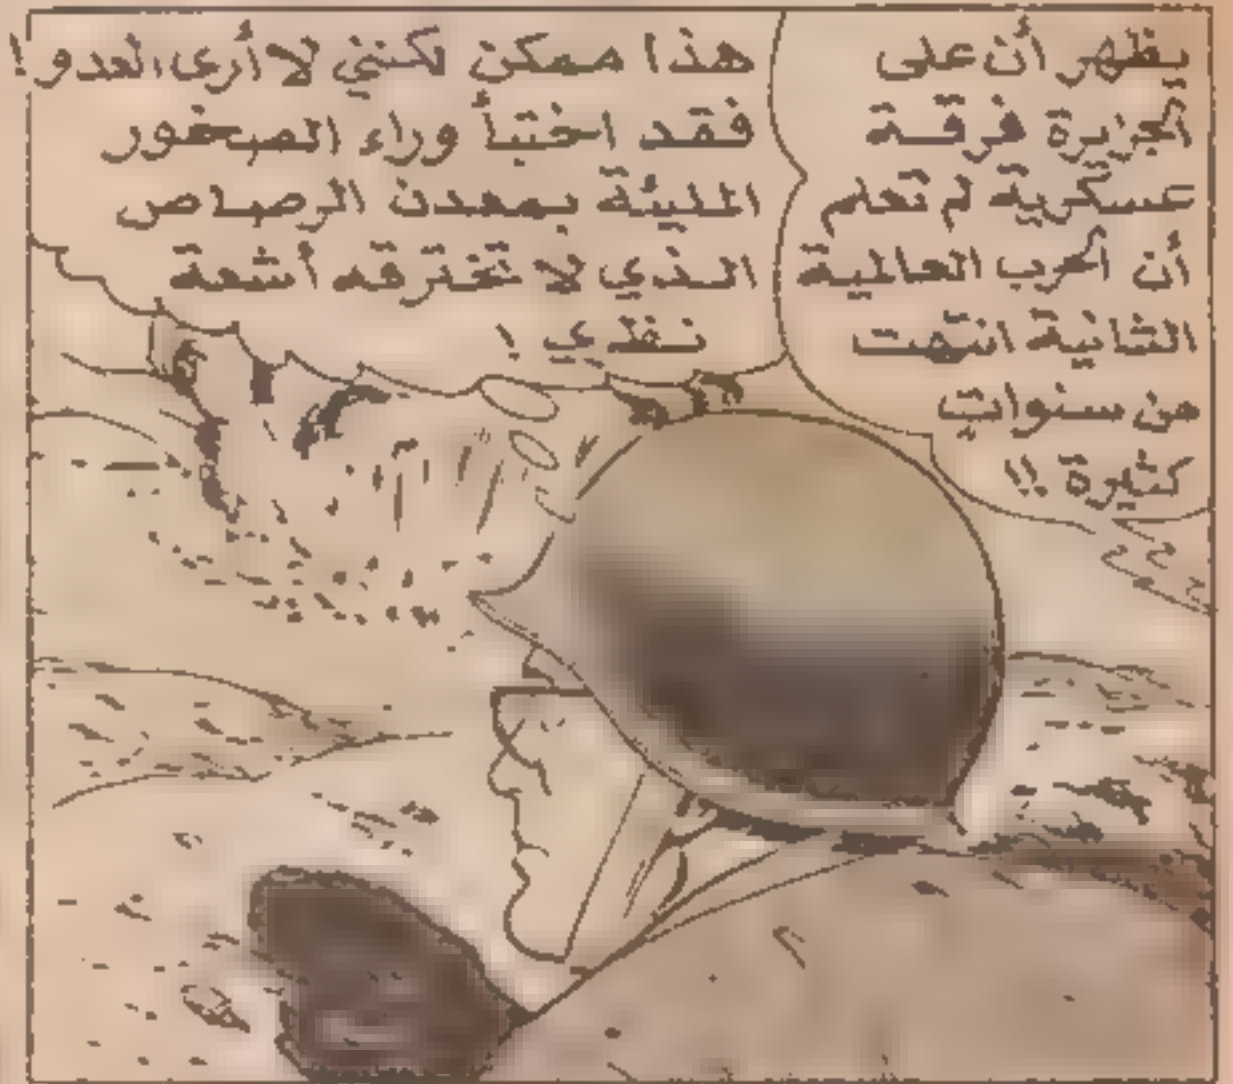 يظهر أن على
الجزيرة فرقة
عسكرية لم تعلم
أن الحرب العالمية
الثانية انتهت
من سنوات
كثيرة !!
هذا ممكن لكنني لا أرى العدو !
فقد اختبأ وراء الصخور
المليئة بمعدن الرصاص
الذي لا تخترقه أشعة
نفذي !